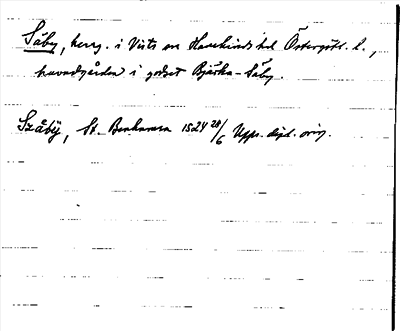 Säby, herrg. i Vists sn Hanekinds hd Östergötl. l.,
huvudgården i godset Bjärka-Säby.
Szäbÿ, St. Benhamra 1524 28/6 Upps. dipl. orig.